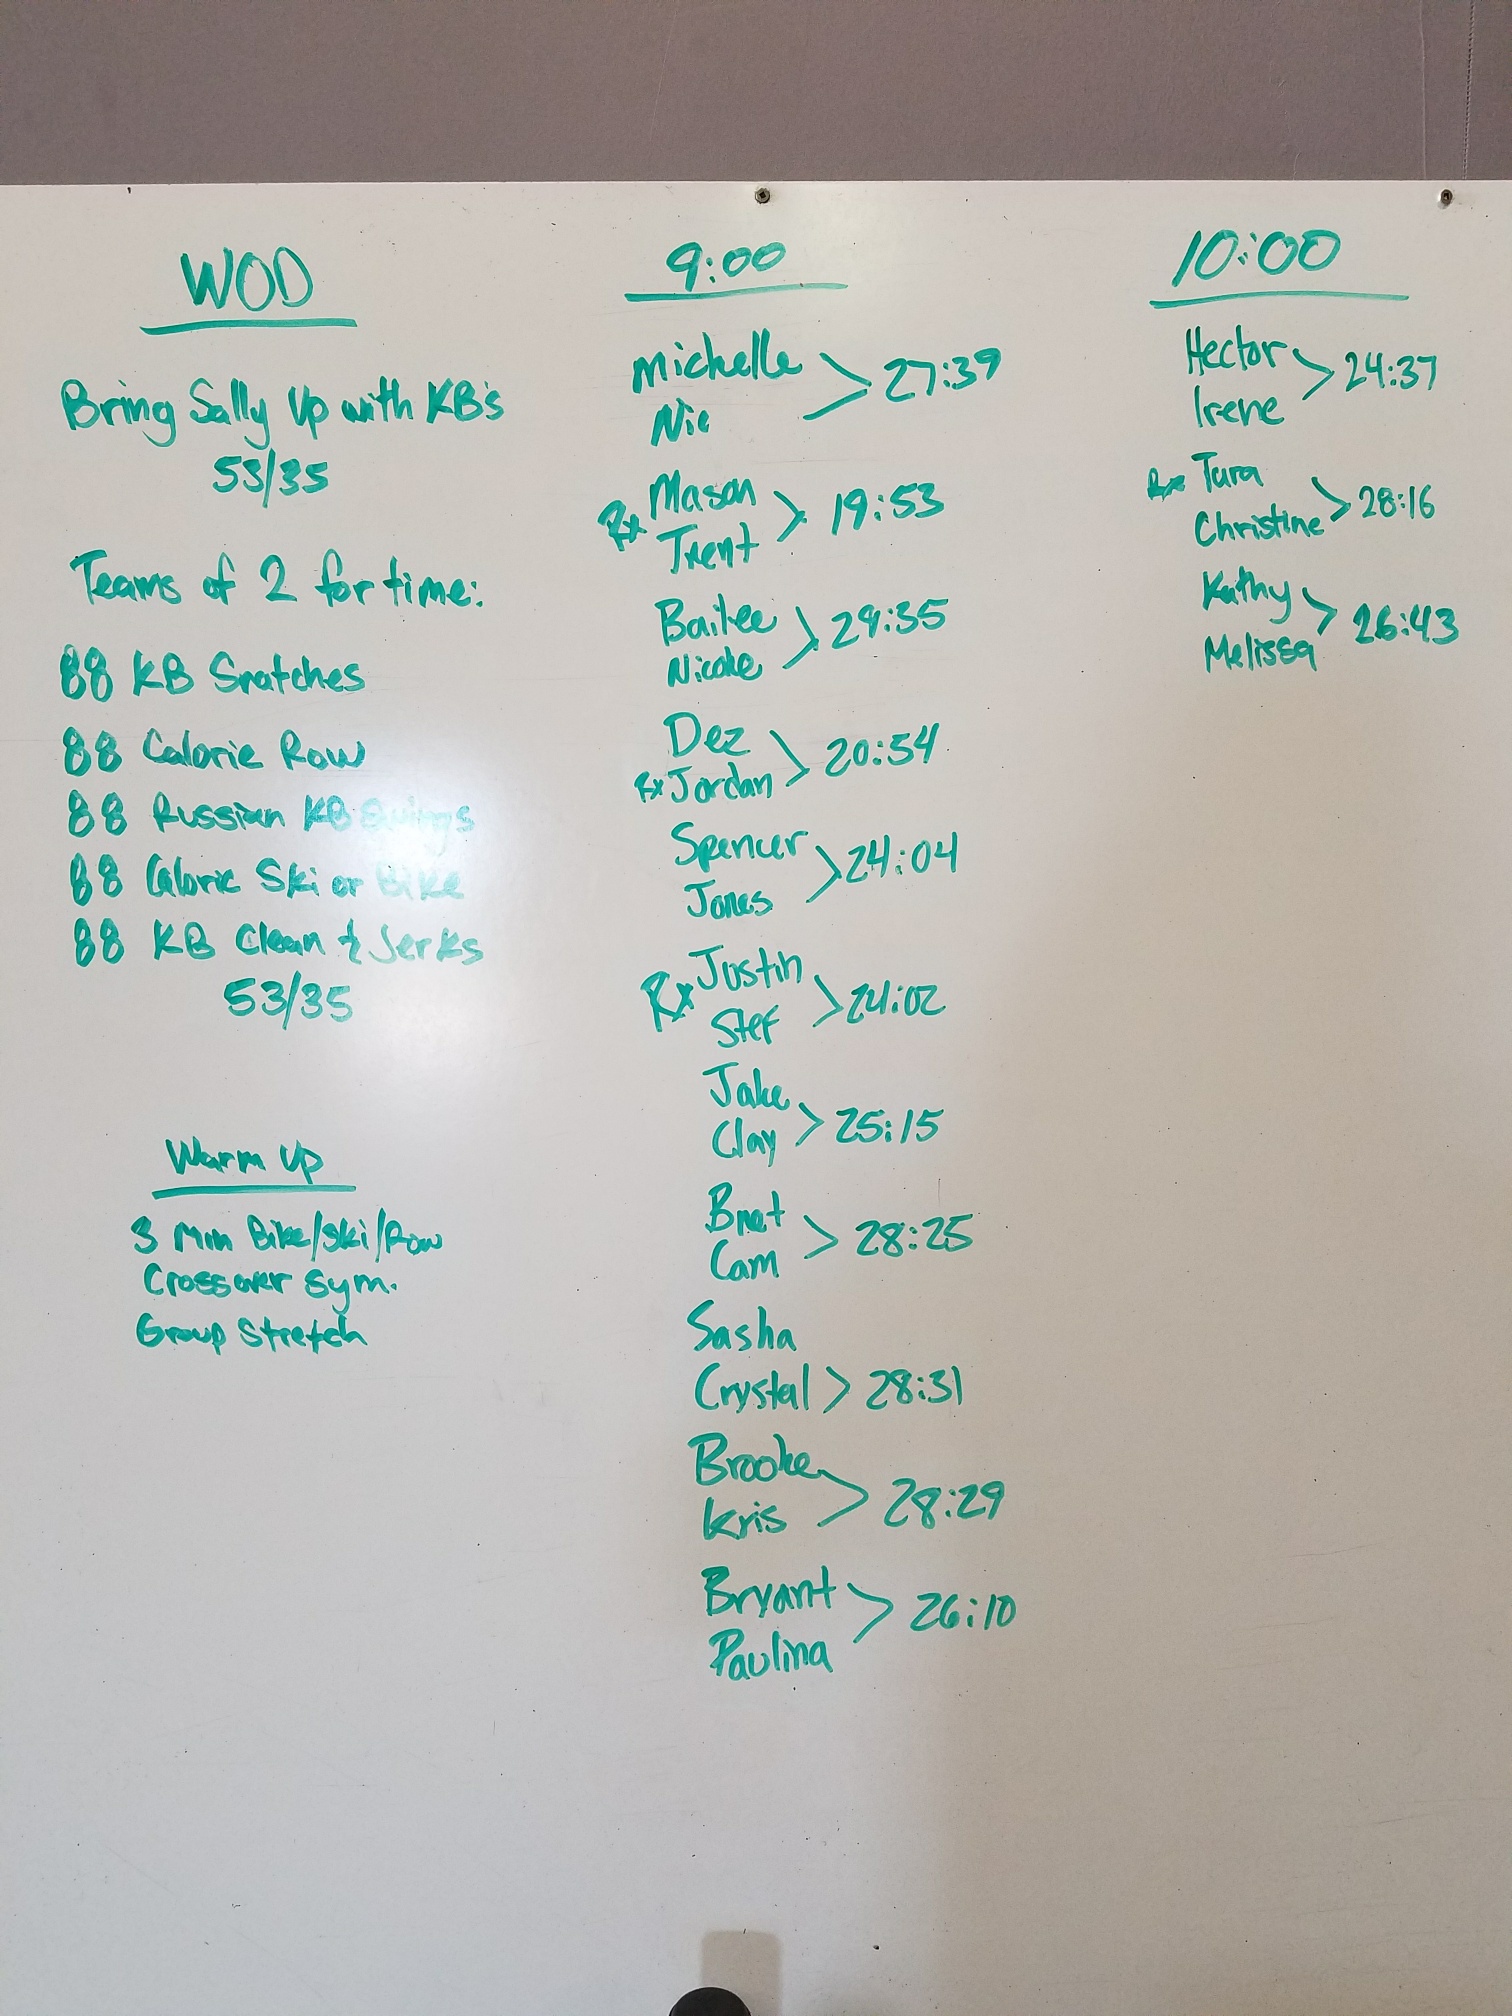 WOD
Bring Sally Up with KB's
53/35
Teams of 2 for time:
88 KB Snatches
88 Calorie Row
88 Russian KB Swings
88 Calorie Ski or Bike
88 KB Clean & Jerks
53/35
Warm Up
3 Min Bike/Ski/Row
Crossover Sym.
Group Stretch
9:00
Michelle
Nic
27:39
Rx
Mason
Trent
19:53
Bailee
Nicole
29:35
Dez
Rx Jordan
20:54
Spencer
Jones
24:04
Rx
Justin
Stef
24:02
Jake
Clay
25:15
Cam
28:25
Sasha
Crystal > 28:31
Brooke
Kris
28:29
Bryant
Paulina
26:10
10:00
Hector
Irene
24:37
Rx Tara
Christine
28:16
Kathy
Melissa
26:43